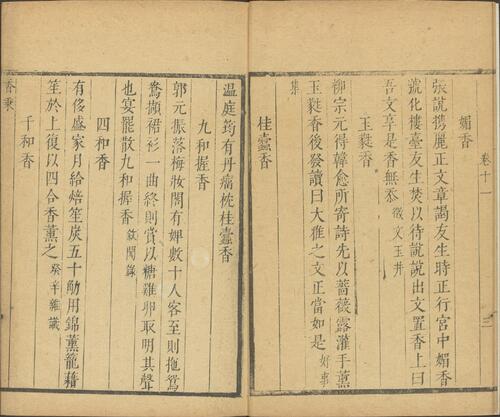 媚香
張說携麗正文章謁友生時正行宮中媚香
號化樓臺友生焚以待說說出文置香上曰
吾文享是香無忝 徵文玉井
玉蕤香
柳宗元得韓愈所寄詩先以薔薇露灌手薰
玉蕤香後發讀曰大雅之文正當如是 好事
集
桂蠹香
卷十一
三
溫庭筠有丹瘤枕桂蠹香
九和握香
郭元振落梅妝閣有婢數十人客至則拖鴛
鴦擷裙衫一曲終則賞以糖雞卵取明其聲
也宴罷散九和握香 叙聞錄
四和香
有侈盛家月給焙笙炭五十觔用錦薰籠藉
笙於上復以四合香薰之 癸辛雜識
千和香
香乘